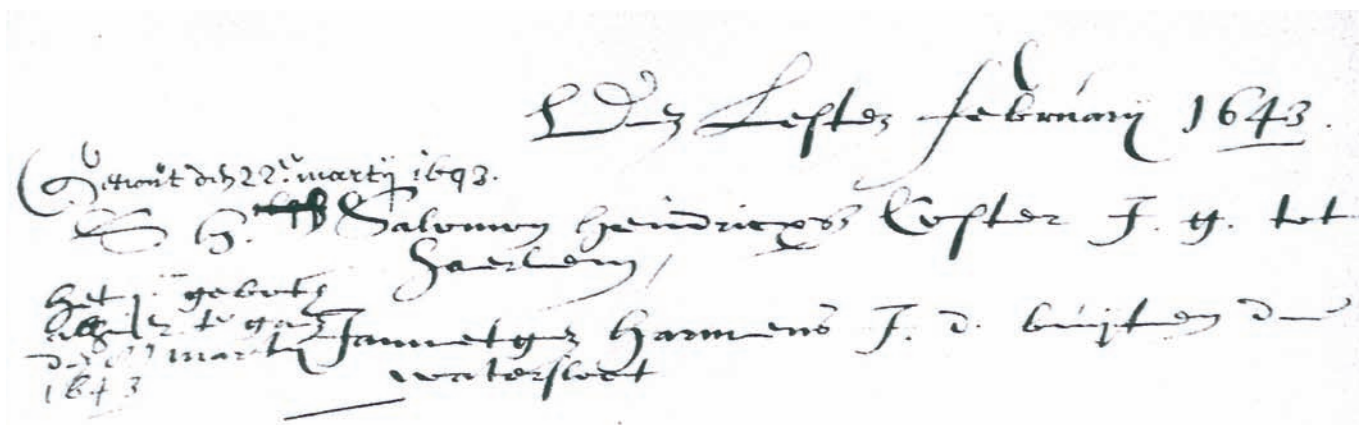 Den Lesten february 1643.
Getrout den 22e. martij 1643.
S. H. Salomon Heindricxs Coster J. g. tot
Haerlem,
het 1e gebott
alhier te gaen
martij Jannetgen Harmens J. d. buijten de
1643 watersloot